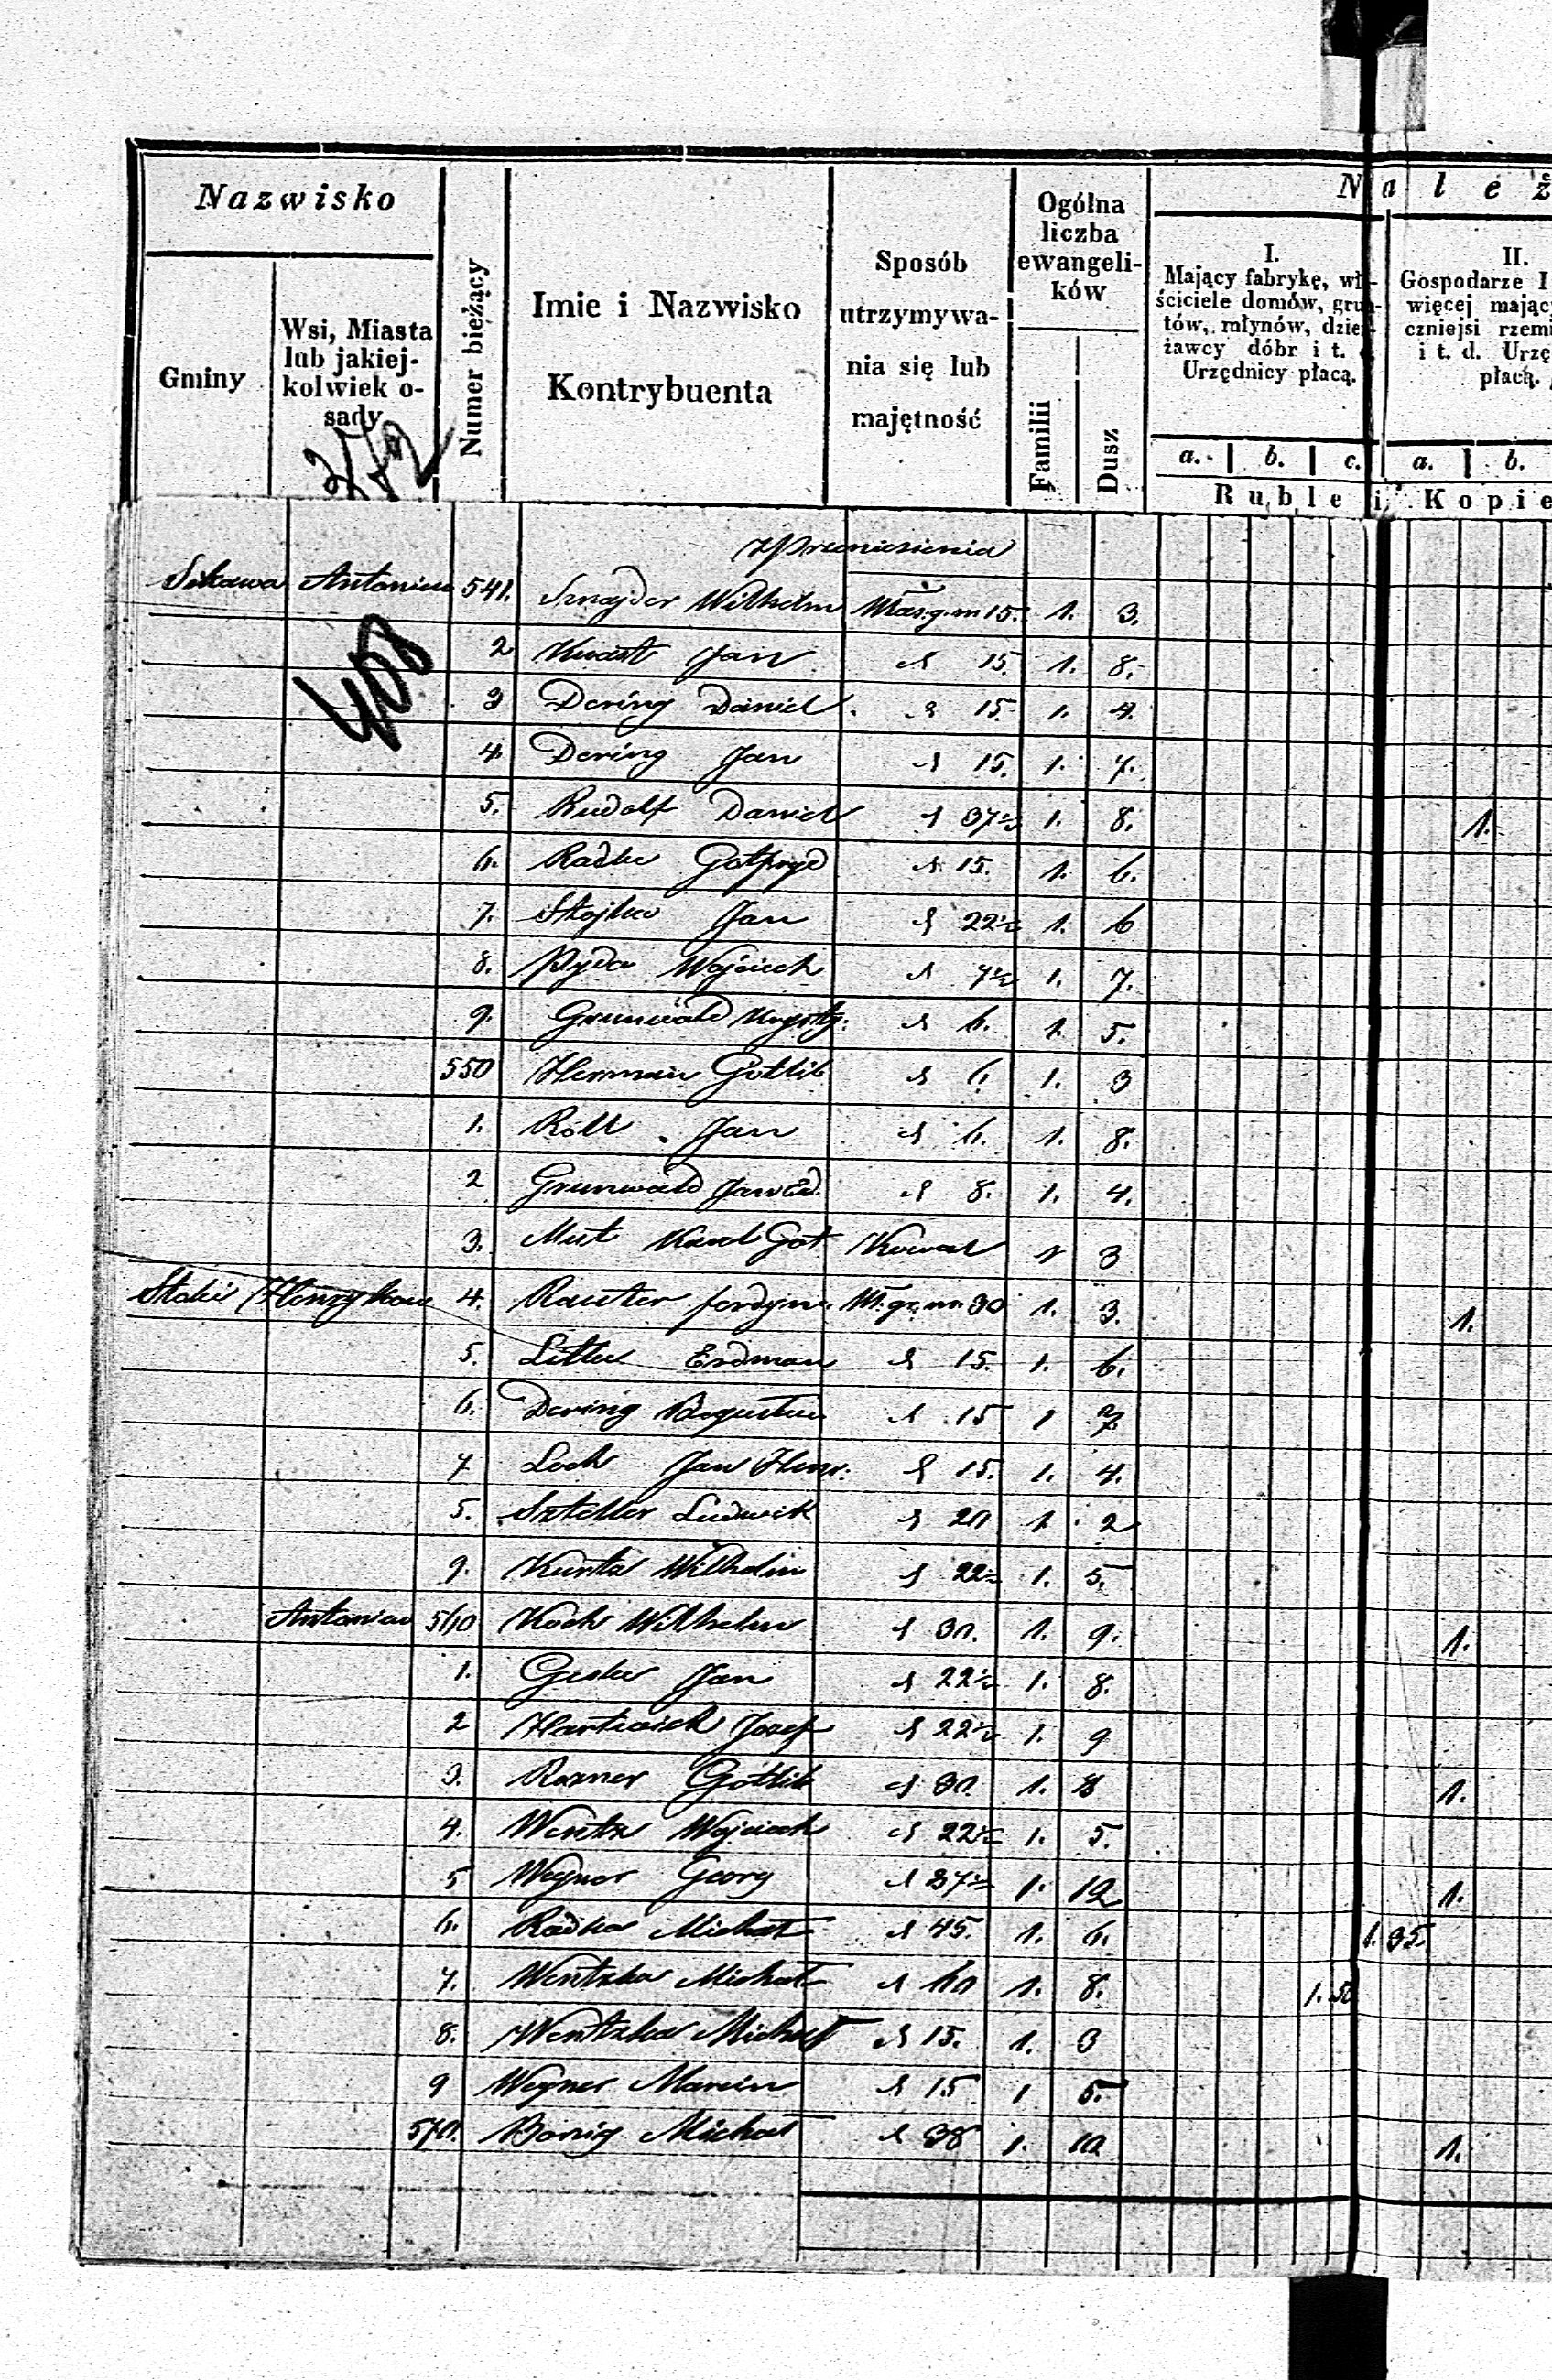 Nazwisko
Gminy
Wsi, Miasta
lub jakiej-
kolwiek o-
sady
Numer bieżący
Imie i Nazwisko
Kontrybuenta
Sposób
utrzymywa-
nia się lub
majętność
Ogólna
liczba
ewangeli-
ków
Familii
Dusz
N a l e ż
I.
Mający fabrykę, wł-
ściciele domów, grun-
tów, młynów, dzier-
żawcy dóbr i t. d.
Urzędnicy płacą.
II.
Gospodarze I
więcej mając
czniejsi rzemi
i t. d. Urzę
płacą.
a. b. c. a. b.
Ruble i Kopie
z Przeniesienia
Sikawa Antoniew 541. Sznajder Wilhelm Włas. g. m 15. 1. 3.
2 Kwast Jan d 15. 1. 8.
3 Dering Daniel d 15. 1. 4.
4. Dering Jan d 15. 1. 7.
5. Rudolf Daniel d 37½ 1. 8. 1.
6. Radke Gotfryd d 15. 1. 6.
7. Stojke Jan d 22½ 1. 6
8. Pyda Wojciech d 7½ 1. 7.
9. Grunwald Krysty. d 6. 1. 5.
550 Herman Gotlib d 6. 1. 3
1. Róll Jan d 6. 1. 8.
2 Grunwald Jan Ed. d 8. 1. 4.
3. Mut Karol Got Kowal 1 3
Stoki Henrykow 4. Rauter ferdyna. W. gr. m. 30 1. 3. 1.
5. Litke Erdman d 15. 1. 6.
6. Dering Augustin d 15 1 7
7 Loch Jan Henr. d 15. 1. 4.
5. Szteller Ludwik d 20 1. 2
9. Kurtz Wilhelm d 22½ 1. 5.
Antoniew 560 Koch Wilhelm d 30. 1. 9. 1.
1. Geske Jan d 22½ 1. 8.
2 Hartwich Jozef d 22½ 1. 9
3. Rozner Gottlib d 30. 1. 8 1.
4. Wentz Wojciech d 22½ 1. 5.
5 Wegner Georg d 37½ 1. 12 1.
6. Radke Michał d 45. 1. 6. 1. 35.
7. Wentzke Michał d 60 1. 8. 1. 50
8. Wentzke Michał d 15. 1. 3
9 Wegner Marcin d 15 1 5.
570. Bönig Michał d 38 1. 10 1.